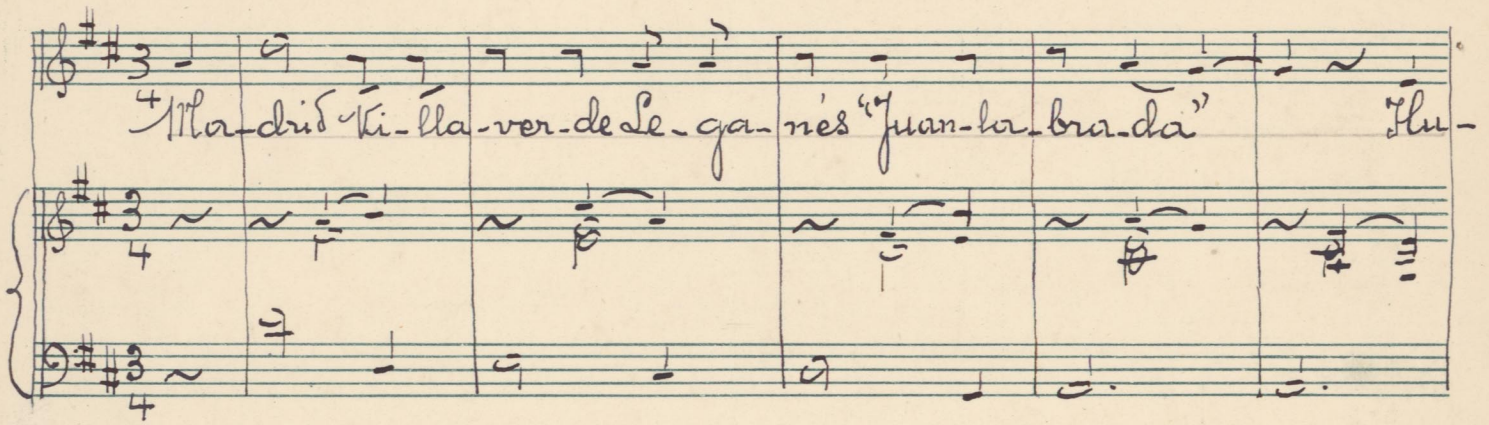 3
4
Ma-drid Vi-lla-ver-de Le-ga-nés "Juan-la-bra-da" Hu-
3
4
3
4